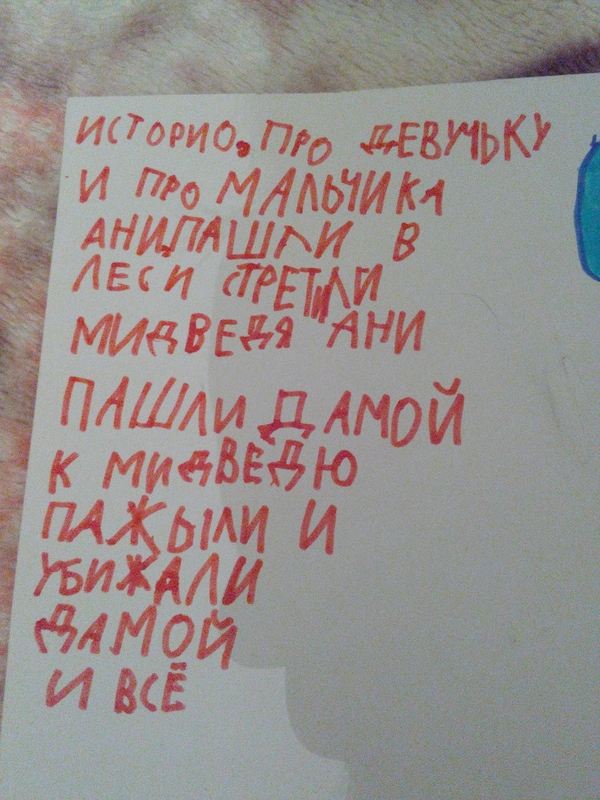 ИСТОРИО, ПРО ДЕВУЧЬКУ
И ПРО МАЛЬЧИКА
АНИ ПАШЛИ В
ЛЕСИ СТРЕТИЛИ
МИДВЕДЯ АНИ
ПАШЛИ ДАМОЙ
К МИДВЕДЮ
ПАЖЫЛИ И
УБИЖАЛИ
ДАМОЙ
И ВСЁ